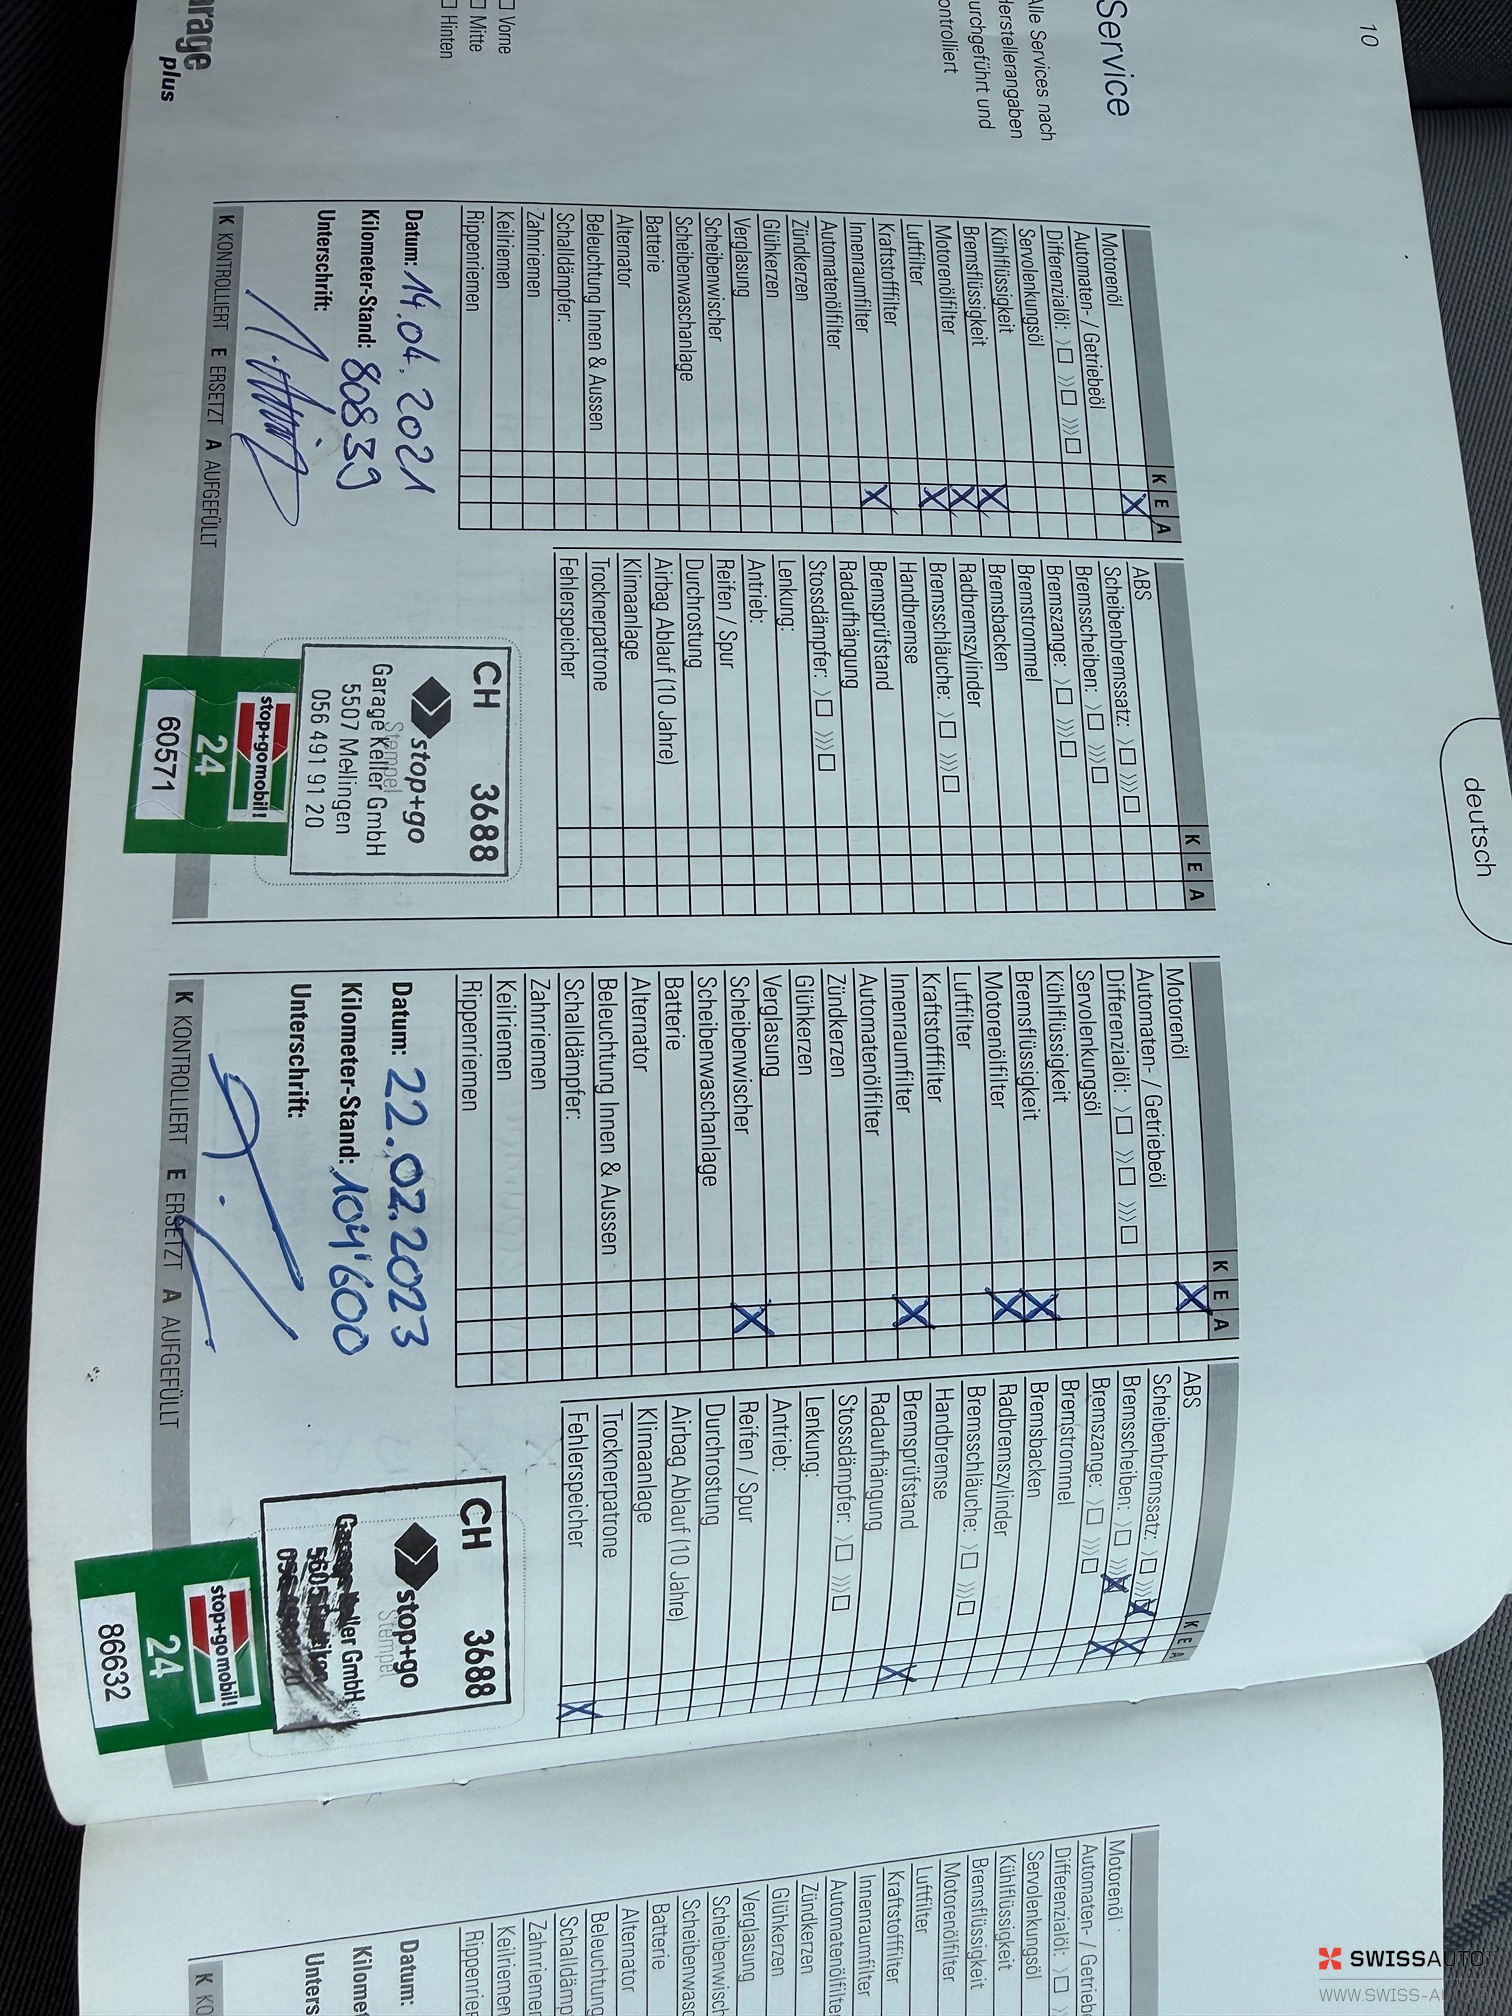 10
deutsch
Service
Alle Services nach
Herstellerangaben
durchgeführt und
kontrolliert
☐ Vorne
☐ Mitte
☐ Hinten
arage
plus
K E A
Motorenöl
Automaten- / Getriebeöl
Differenzialöl: ⟩☐ ⟩⟩☐ ⟩⟩⟩☐
Servolenkungsöl
Kühlflüssigkeit
Bremsflüssigkeit
Motorenölfilter
Luftfilter
Kraftstofffilter
Innenraumfilter
Automatenölfilter
Zündkerzen
Glühkerzen
Verglasung
Scheibenwischer
Scheibenwaschanlage
Batterie
Alternator
Beleuchtung Innen & Aussen
Schalldämpfer:
Zahnriemen
Keilriemen
Rippenriemen
Datum: 14.04.2021
Kilometer-Stand: 80839
Unterschrift:
K KONTROLLIERT E ERSETZT A AUFGEFÜLLT
K E A
ABS
Scheibenbremssatz: ⟩☐ ⟩⟩⟩☐
Bremsscheiben: ⟩☐ ⟩⟩⟩☐
Bremszange: ⟩☐ ⟩⟩⟩☐
Bremstrommel
Bremsbacken
Radbremszylinder
Bremsschläuche: ⟩☐ ⟩⟩⟩☐
Handbremse
Bremsprüfstand
Radaufhängung
Stossdämpfer: ⟩☐ ⟩⟩⟩☐
Lenkung:
Antrieb:
Reifen / Spur
Durchrostung
Airbag Ablauf (10 Jahre)
Klimaanlage
Trocknerpatrone
Fehlerspeicher
CH 3688
stop+go
Stempel
Garage Keller GmbH
5507 Mellingen
056 491 91 20
stop+go mobil!
24
60571
K E A
Motorenöl
Automaten- / Getriebeöl
Differenzialöl: ⟩☐ ⟩⟩☐ ⟩⟩⟩☐
Servolenkungsöl
Kühlflüssigkeit
Bremsflüssigkeit
Motorenölfilter
Luftfilter
Kraftstofffilter
Innenraumfilter
Automatenölfilter
Zündkerzen
Glühkerzen
Verglasung
Scheibenwischer
Scheibenwaschanlage
Batterie
Alternator
Beleuchtung Innen & Aussen
Schalldämpfer:
Zahnriemen
Keilriemen
Rippenriemen
Datum: 22.02.2023
Kilometer-Stand: 104'600
Unterschrift:
K KONTROLLIERT E ERSETZT A AUFGEFÜLLT
K E A
ABS
Scheibenbremssatz: ⟩☐ ⟩⟩⟩☐
Bremsscheiben: ⟩☐ ⟩⟩⟩☐
Bremszange: ⟩☐ ⟩⟩⟩☐
Bremstrommel
Bremsbacken
Radbremszylinder
Bremsschläuche: ⟩☐ ⟩⟩⟩☐
Handbremse
Bremsprüfstand
Radaufhängung
Stossdämpfer: ⟩☐ ⟩⟩⟩☐
Lenkung:
Antrieb:
Reifen / Spur
Durchrostung
Airbag Ablauf (10 Jahre)
Klimaanlage
Trocknerpatrone
Fehlerspeicher
CH 3688
stop+go
Stempel
Garage Keller GmbH
stop+go mobil!
24
86632
Motorenöl
Automaten- / Getriebe
Differenzialöl: ⟩☐
Servolenkungsöl
Kühlflüssigkeit
Bremsflüssigkeit
Motorenölfilter
Luftfilter
Kraftstofffilter
Innenraumfilter
Automatenölfilte
Zündkerzen
Glühkerzen
Verglasung
Scheibenwisch
Scheibenwasc
Batterie
Alternator
Beleuchtung
Schalldämp
Zahnriemen
Keilriemen
Rippenrie
Datum:
Kilomet
Unters
K KO
SWISSAUTO
WWW.SWISS-AU